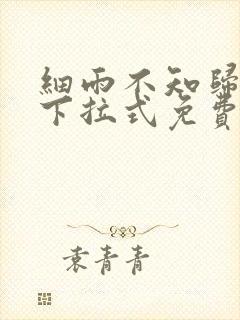 細雨不知歸
下拉式免費
袁青青